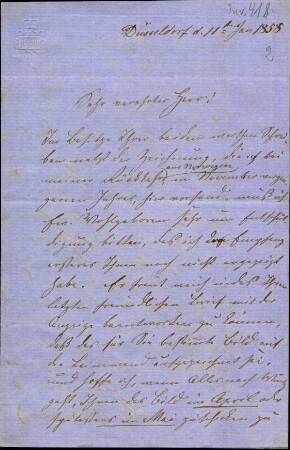 Düsseldorf d. 11t Jan 1858
2
Sehr verehrter Herr!
Im Besitze Ihrer beiden werthen Schrei-
ben nebst der Zeichnung, die ich bei
aus Norwegen
meiner Rückkehr im November vergan-
genen Jahres, hier vorfand, muß ich
Ew. Wohlgeboren sehr um Entschul-
digung bitten, daß ich den Empfang
Ihnen noch nicht angezeigt
habe. Es freut mich indeß Ihren
letzten freundlichen Brief mit der
Anzeige beantworten zu können,
daß das für Sie bestimmte Bild auf
der Leinwand aufgezeichnet sei
und hoffe ich, wenn Alles nach Wunsch
geht, Ihnen das Bild im April oder
spätestens im Mai zuschicken zu